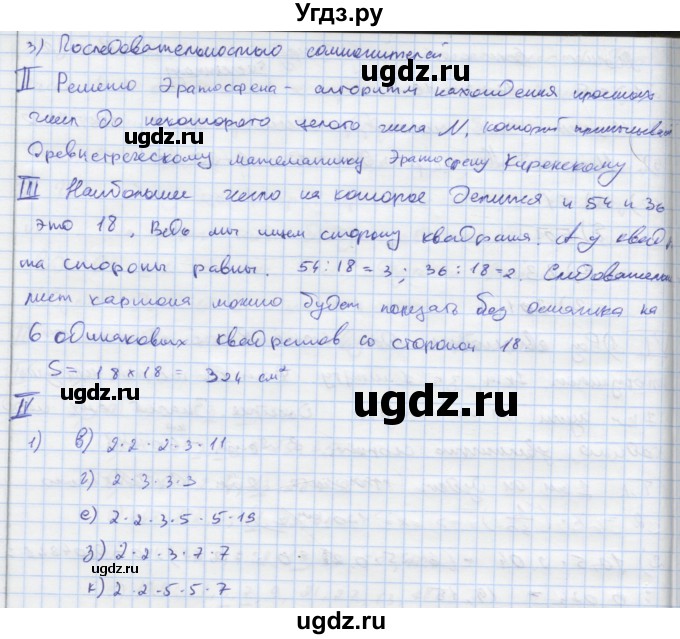 Угдз.ру
3) Последовательностью сомножителей
II Решето Эратосфена - алгоритм нахождения простых
чисел до некоторого целого числа N, который приписывают
Древнегреческому математику Эратосфену Киренскому
III Наибольшее число на которое делится и 54 и 36
это 18, Ведь мы ищем сторону квадрата. А у квад
та стороны равны. 54 : 18 = 3; 36 : 18 = 2. Следовательно
лист картона можно будет порезать без остатка на
6 одинаковых квадратов со стороной 18
S = 18 × 18 = 324 см²
IV
1) в) 2·2·2·3·11
г) 2·3·3·3
е) 2·2·3·5·5·19
з) 2·2·3·7·7
к) 2·2·5·5·7
ugdz.ru
ugdz.ru
ugdz.ru
ugdz.ru
ugdz.ru
ugdz.ru
ugdz.ru
ugdz.ru
ugdz.ru